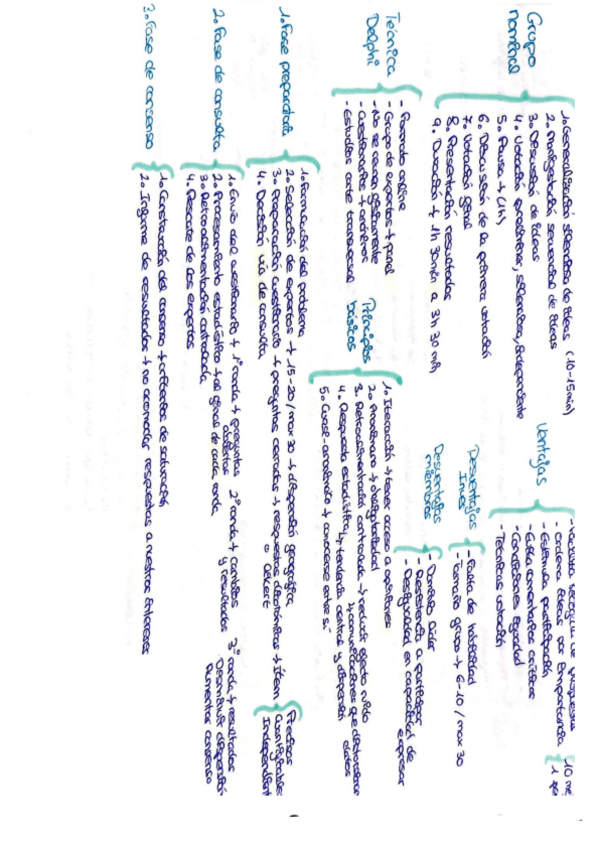 Grupo nominal
1. Generalización silenciosa de ideas (10-15min)
2. Manifestación secuencial de ideas
3. Discusión de ideas
4. Votación preliminar, silenciosa, independiente
5. Pausa → (1h)
6. Discusión de la primera votación
7. Votación final
8. Presentación resultados
9. Duración → 1h 30min a 3h 30 min
Ventajas
- recogida de propuestas
- Ordena ideas por importancia
- Estimula participación
- Evita comentarios
- Condiciones igualdad
- Técnicas votación
10
1
Desventajas Inves
- Falta de habilidad
- Tamaño grupo → 6-10 / max 30
Desventajas miembros
- Dominio líder
- Resistencia a participar
- Desigualdad en capacidad de expresar
Técnica Delphi
- Formato online
- Grupo de expertos → panel
- No se reunen físicamente
- Cuestionarios → anónimos
- Estudios corte transversal
Principios básicos
1. Iteración → tener acceso a opiniones
2. Anonimato →
3. Retroalimentación controlada → reducir efecto ruido
↳ comunicaciones que distorsionan datos
4. Respuesta estadística → tendencia central y dispersión
5. Cuasi-anonimato → conocerse entre sí
1. Fase preparatoria
1. Formulación del problema
2. Selección de expertos → 15-20 / max 30 → dispersión geográfica
3. Preparación cuestionario → preguntas cerradas → respuestas dicotómicas → Item
o likert
Precisos
Cuantificables
Independient
4. Decisión vía de consulta
2. Fase de consulta
1. Envío del cuestionario → 1ª ronda → preguntas abiertas
2ª ronda → cambios y resultados
3ª ronda → resultados
Disminuir dispersión
Aumentar consenso
2. Procesamiento estadístico → al final de cada ronda
3. Retroalimentación controlada
4. Rescate de los expertos
3. Fase de consenso
1. Construcción del consenso → criterios de saturación
2. Informe de resultados → no acomodar respuestas a nuestros intereses